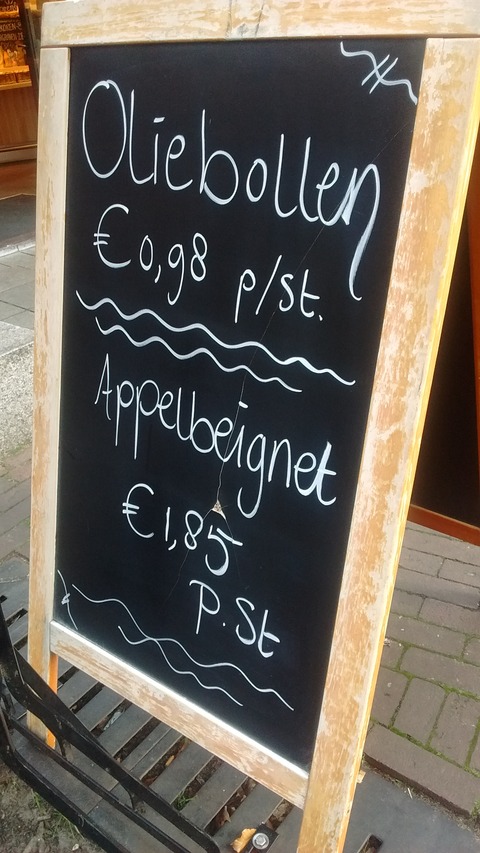 Oliebollen
€0,98 p/st.
Appelbeignet
€1,85
P.St